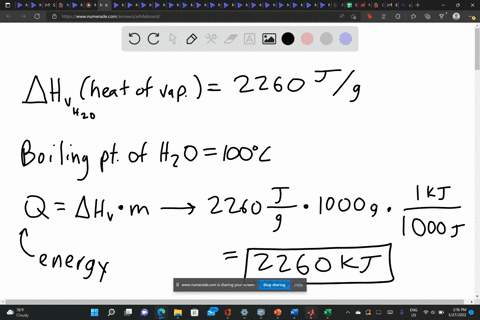 https://www.numerade.com/answers/whiteboard/
ΔHv (heat of vap.) = 2260 J/g
H2O
Boiling pt. of H2O = 100°C
Q = ΔHv • m → 2260 J/g • 1000g • 1 KJ/1000 J
energy
= 2260 KJ
www.numerade.com is sharing your screen. Stop sharing Hide
78°F
Cloudy
ENG
US
2:16 PM
5/27/2022